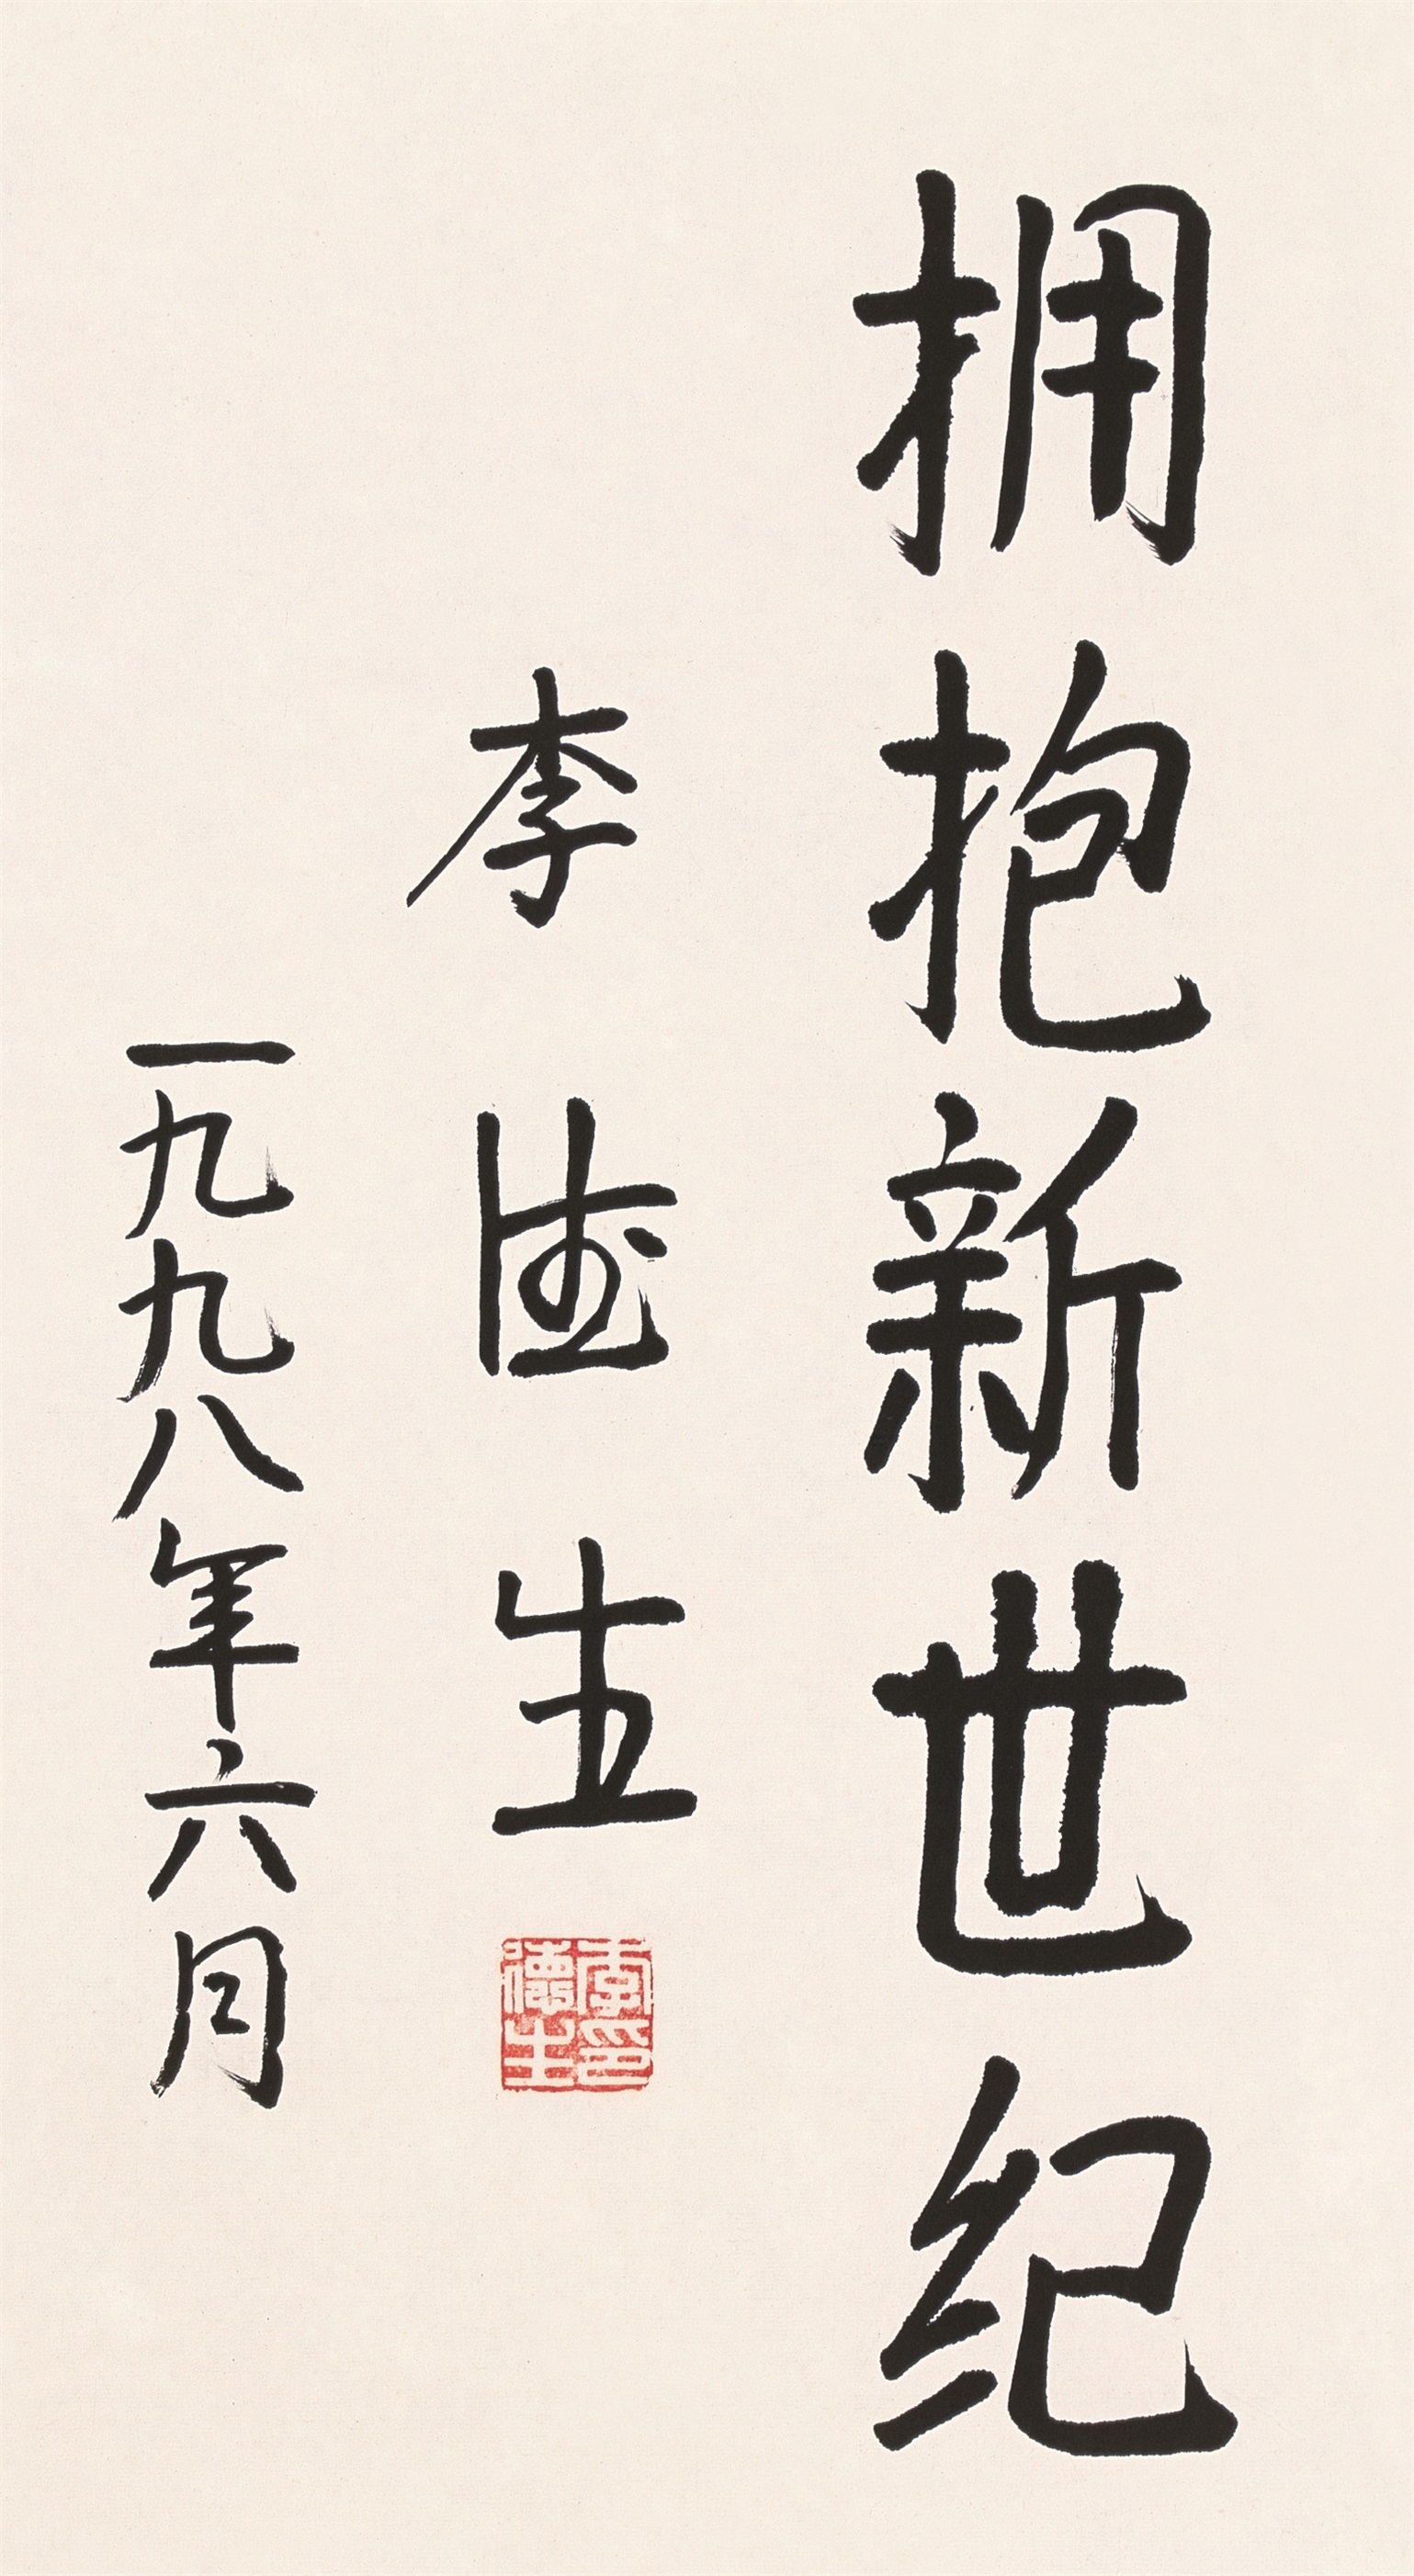 拥抱新世纪
李德生
李德生印
一九九八年六月